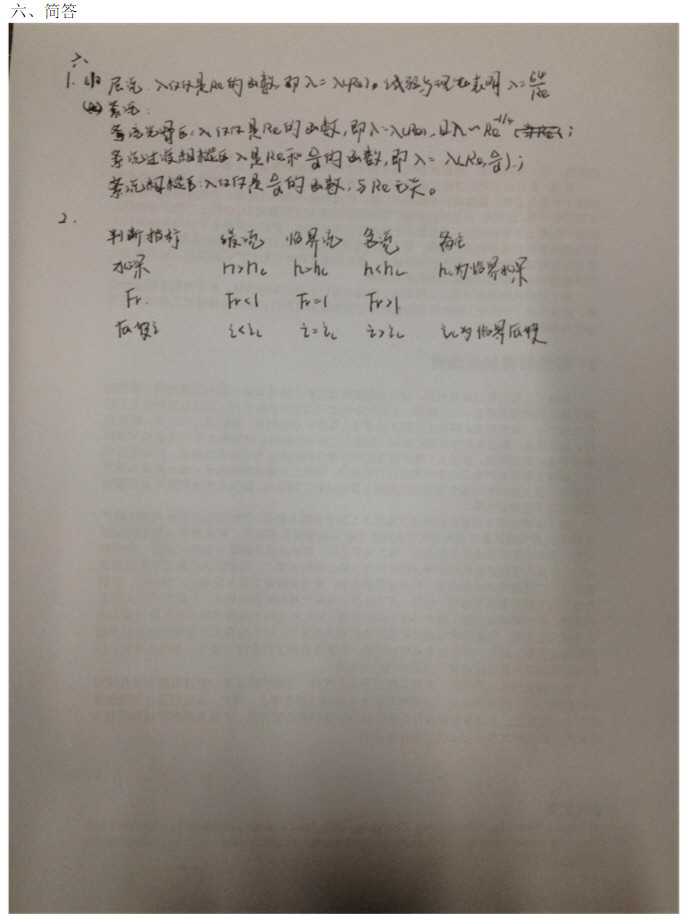 六、简答
六
1. (1) 层流:λ仅仅是Re的函数,即λ=λ(Re)。试验与理论表明λ=64/Re
(2) 紊流:
紊流光滑区:λ仅仅是Re的函数,即λ=λ(Re),且λ~Re^-1/4;
紊流过渡粗糙区λ是Re和的函数,即λ=λ(Re,);
紊流粗糙区:λ仅仅是的函数,与Re无关。
2.
判断指标 缓流 临界流 急流 备注
水深 h>hc h=hc h<hc hc为临界水深
Fr. Fr<1 Fr=1 Fr>1
底坡i i<ic i=ic i>ic ic为临界底坡